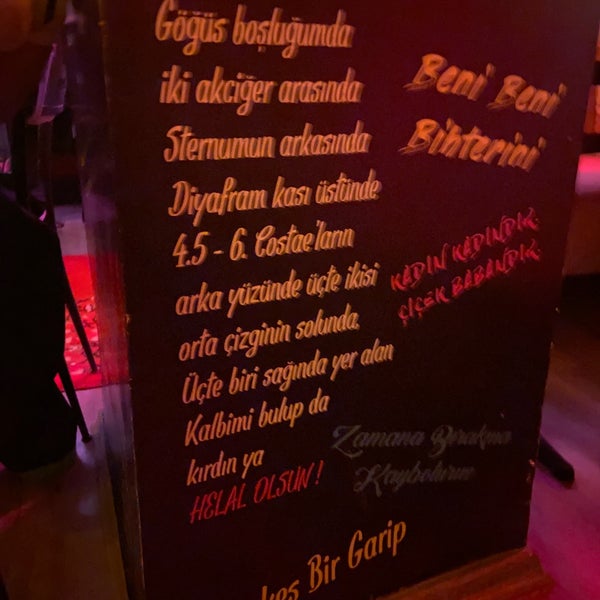 Göğüs boşluğumda
iki akciğer arasında
Sternumun arkasında
Diyafram kası üstünde
4.5 - 6. Costae'ların
arka yüzünde üçte ikisi
orta çizginin solunda,
Üçte biri sağında yer alan
Kalbimi bulup da
kırdın ya
HELAL OLSUN!
Beni Beni
Bihterini
KADIN KADINDIR
ÇİÇEK BABANDIR
Zamana Bırakma
Kaybolurum
Bir Garip